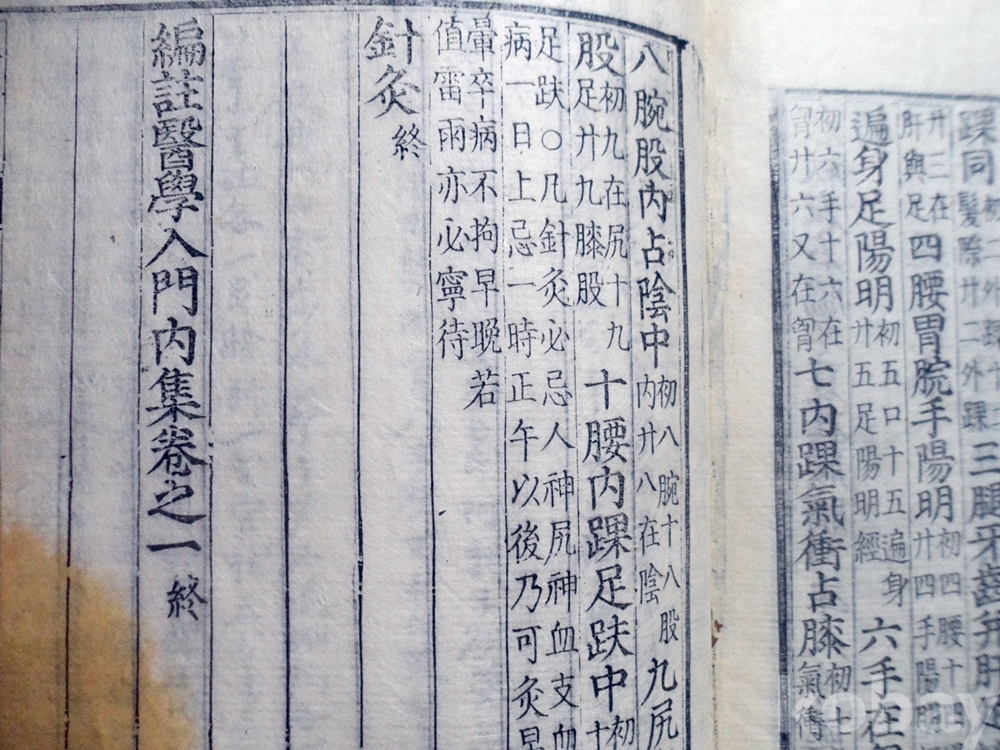 踝同初二外踝十髮際廿二外踝三腿牙齒并肝
廿三在肝與足四腰胃脘手陽明初四腰十四廿四手陽明
遍身足陽明初五口十五遍身廿五足陽明經六手在
初六手十六在胷廿六又在胷七內踝氣衝占膝初七氣衝
八腕股內占陰中初八腕十八股內廿八在陰九尻
股初九在尻十九足廿九膝股十腰內踝足趺中初十
足趺〇凡針灸必忌人神尻神血支血
病一日上忌一時正午以後乃可灸早
暈卒病不拘早晚若
值雷雨亦必寧待
針灸終
編註醫學入門內集卷之一終